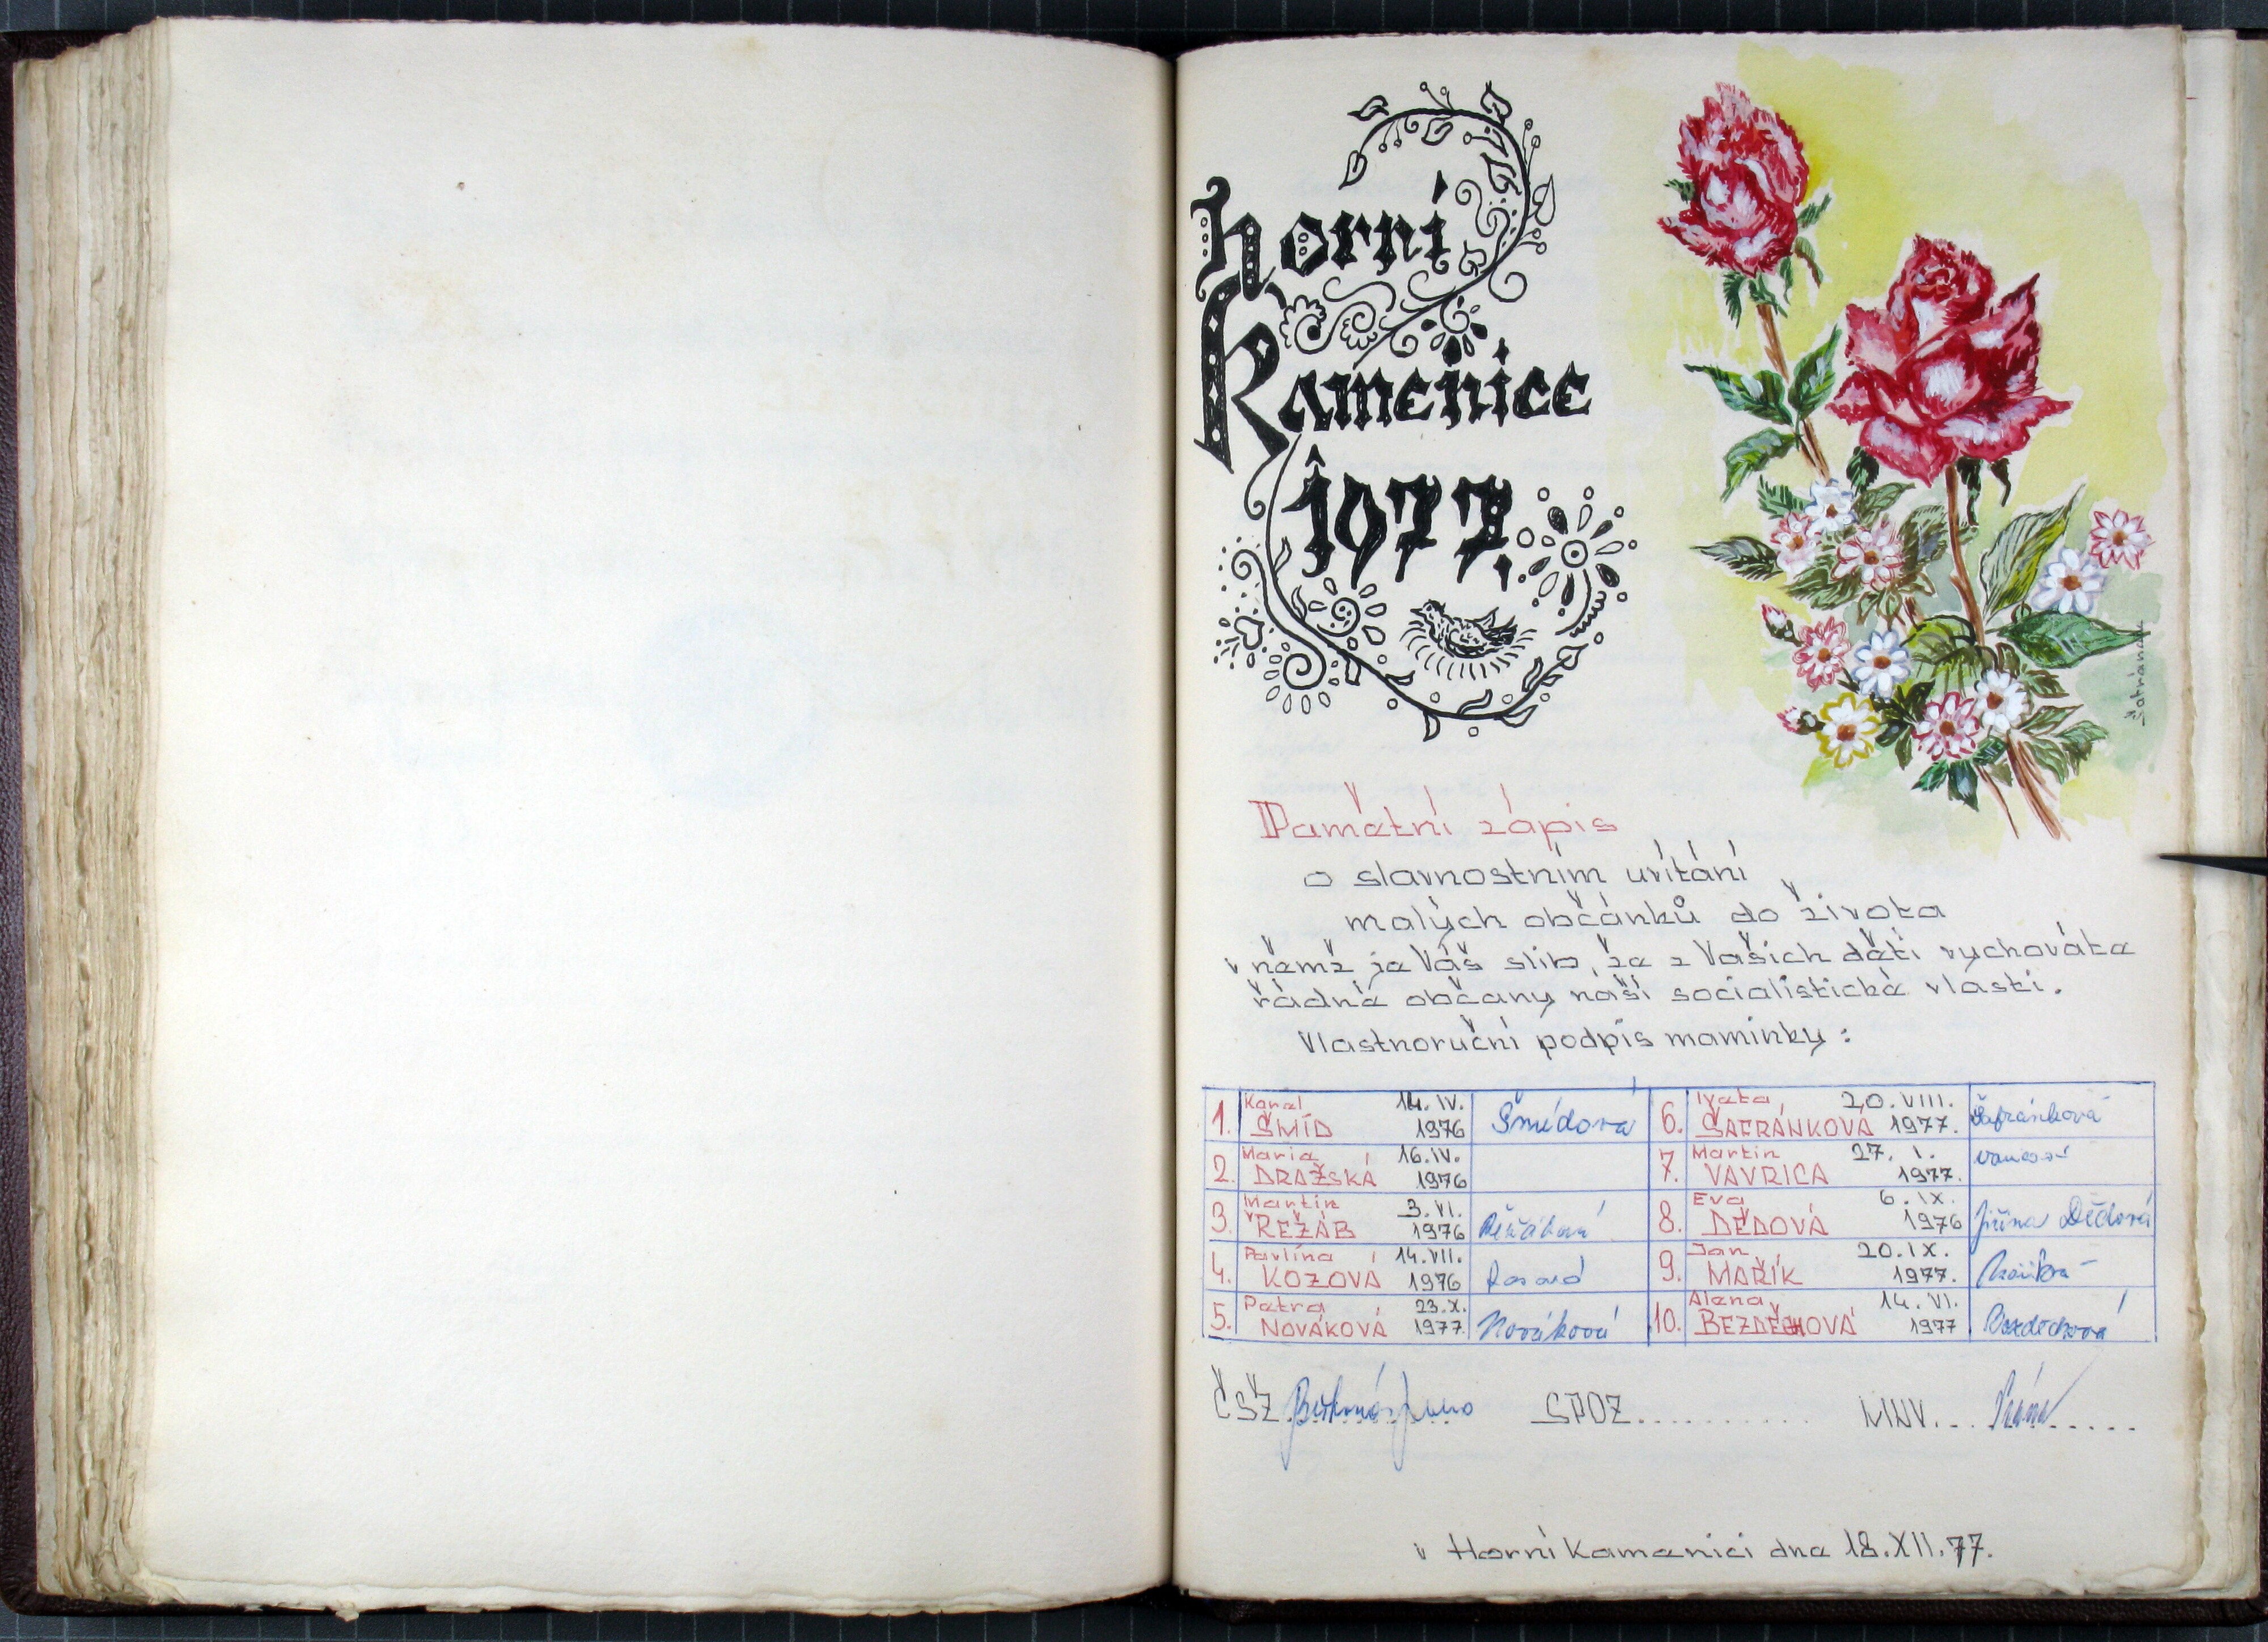 Horní
Kamenice
1977.
Šafránek
Pamětní zápis
o slavnostním uvítání
malých občánků do života
v němž je Váš slib, že z Vašich dětí vychováte
řádné občany naší socialistické vlasti.
Vlastnoruční podpis maminky:
1. Karel ŠMÍD 14. IV. 1976 Šmídová
2. Marie DRAŽSKÁ 16. IV. 1976
3. Martin ŘEŽÁB 3. VI. 1976 Řežábová
4. Pavlína KOZOVÁ 14. VII. 1976
5. Petra NOVÁKOVÁ 23. X. 1977 Nováková
6. Iveta ŠAFRÁNKOVÁ 20. VIII. 1977. Šafránková
7. Martin VAVRICA 27. I. 1977.
8. Eva DĚDOVÁ 6. IX. 1976 Jiřina Dědová
9. Jan MAŘÍK 20. IX. 1977. Maříková
10. Alena BEZDĚCHOVÁ 14. VI. 1977 Bezděchová
ČSŽ SPOZ.......... MNV.........
v Horní Kamenici dne 18. XII. 77.